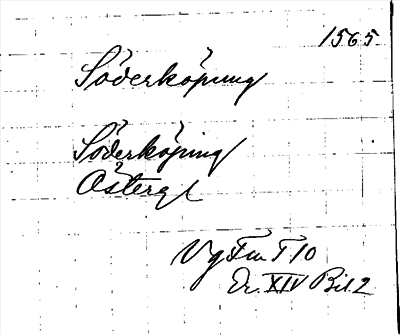 1565
Söderköping
Söderköping
Östergl
Vg Fm T 10
Dr XIV Bil. 2